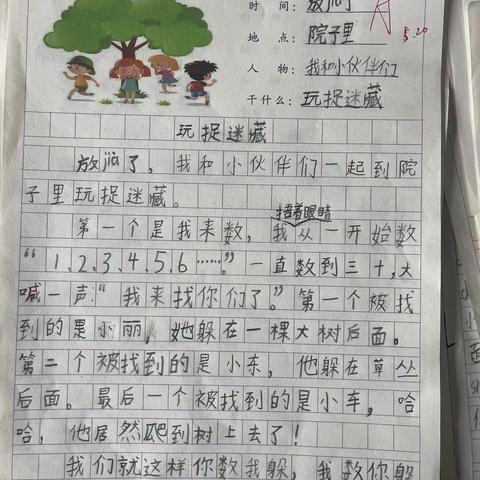 时 间：放jià了
A
5.20
地 点：院子里
人 物：我和小伙伴们
干什么：玩捉迷藏
玩捉迷藏
放jià了，我和小伙伴们一起到院
子里玩捉迷藏。
捂着眼睛
第一个是我来数，我从一开始数
“1、2、3、4、5、6……”。一直数到三十，大
喊一声：“我来找你们了。”第一个被找
到的是小丽，她躲在一棵大树后面。
第二个被找到的是小东，他躲在草丛
后面。最后一个被找到的是小车，哈
哈，他居然爬到树上去了！
我们就这样你数我躲，我数你躲